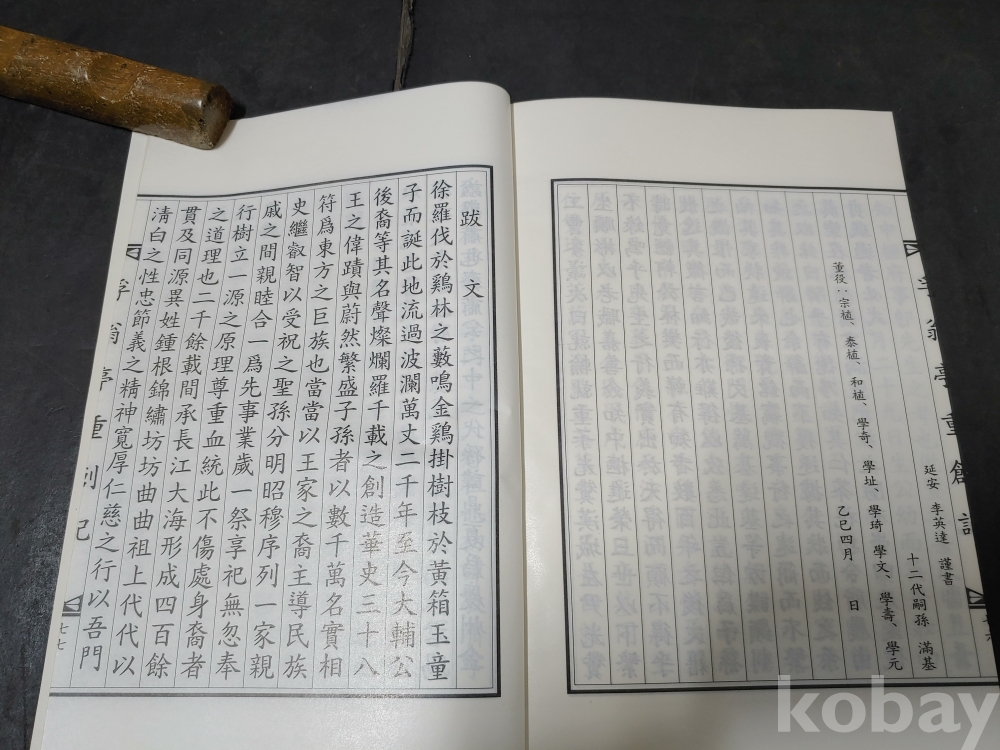 延安 李英達 謹書
十二代嗣孫 滿基
董役：宗植、泰植、和植、學奇、學址、學琦 學文、學壽、學元
乙巳四月 日
亭重創記
跋文
徐羅伐於鷄林之藪鳴金鷄掛樹枝於黃箱玉童
子而誕此地流過波瀾萬丈二千年至今大輔公
後裔等其名聲燦爛羅千載之創造華史三十八
王之偉蹟與蔚然繁盛子孫者以數千萬名實相
符爲東方之巨族也當當以王家之裔主導民族
史繼叡智以受祝之聖孫分明昭穆序列一家親
戚之間親睦合一爲先事業歲一祭享祀無忽奉
行樹立一源之原理尊重血統此不傷處身裔者
之道理也二千餘載間承長江大海形成四百餘
貫及同源異姓鍾根錦繡坊坊曲曲祖上代代以
淸白之性忠節義之精神寬厚仁慈之行以吾門
亭重創記
七七
kobay